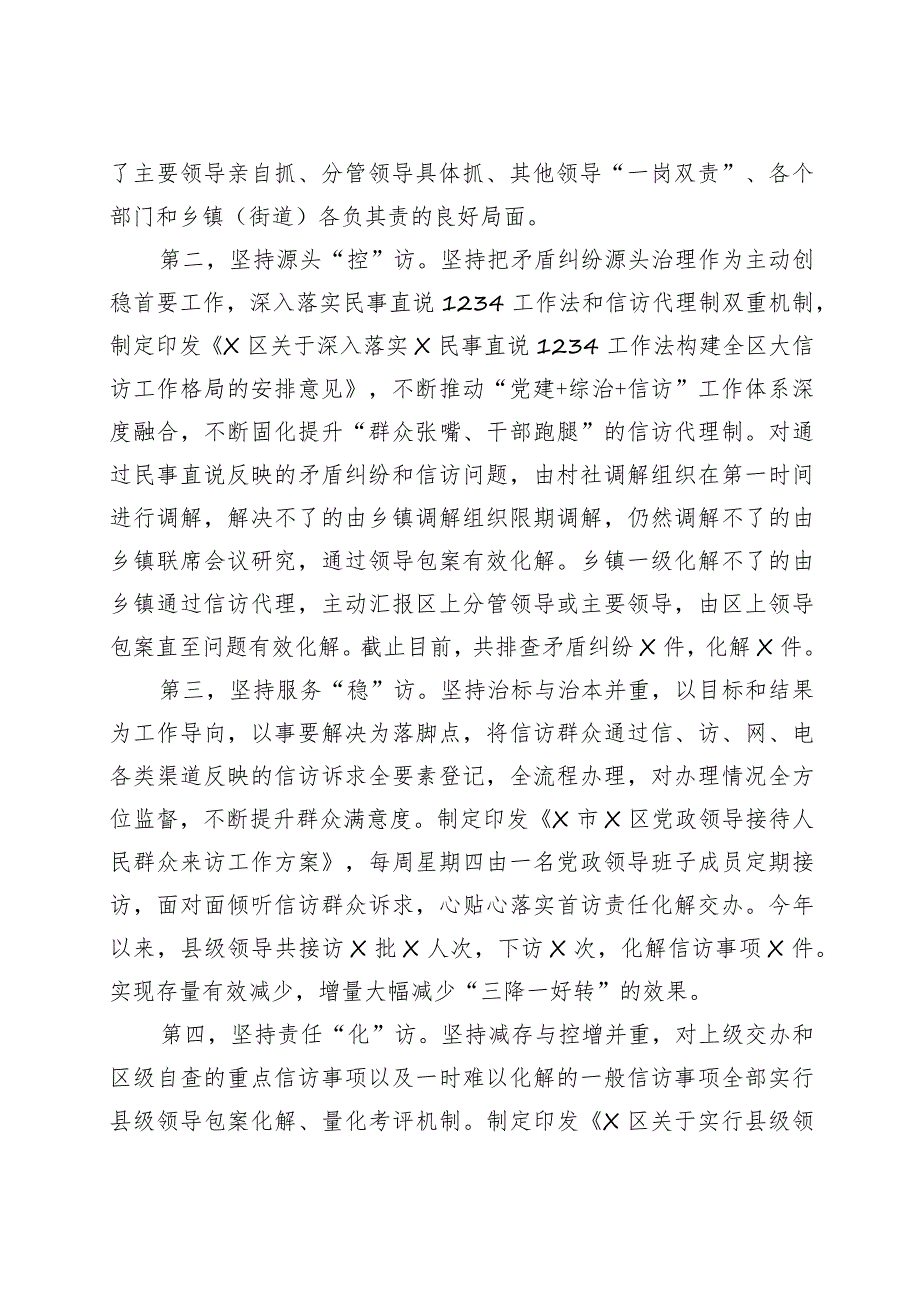 了主要领导亲自抓、分管领导具体抓、其他领导“一岗双责”、各个
部门和乡镇（街道）各负其责的良好局面。
第二，坚持源头“控”访。坚持把矛盾纠纷源头治理作为主动创
稳首要工作，深入落实民事直说1234工作法和信访代理制双重机制，
制定印发《X区关于深入落实X民事直说1234工作法构建全区大信
访工作格局的安排意见》，不断推动“党建+综治+信访”工作体系深
度融合，不断固化提升“群众张嘴、干部跑腿”的信访代理制。对通
过民事直说反映的矛盾纠纷和信访问题，由村社调解组织在第一时间
进行调解，解决不了的由乡镇调解组织限期调解，仍然调解不了的由
乡镇联席会议研究，通过领导包案有效化解。乡镇一级化解不了的由
乡镇通过信访代理，主动汇报区上分管领导或主要领导，由区上领导
包案直至问题有效化解。截止目前，共排查矛盾纠纷X件，化解X件。
第三，坚持服务“稳”访。坚持治标与治本并重，以目标和结果
为工作导向，以事要解决为落脚点，将信访群众通过信、访、网、电
各类渠道反映的信访诉求全要素登记，全流程办理，对办理情况全方
位监督，不断提升群众满意度。制定印发《X市X区党政领导接待人
民群众来访工作方案》，每周星期四由一名党政领导班子成员定期接
访，面对面倾听信访群众诉求，心贴心落实首访责任化解交办。今年
以来，县级领导共接访X批X人次，下访X次，化解信访事项X件。
实现存量有效减少，增量大幅减少“三降一好转”的效果。
第四，坚持责任“化”访。坚持减存与控增并重，对上级交办和
区级自查的重点信访事项以及一时难以化解的一般信访事项全部实行
县级领导包案化解、量化考评机制。制定印发《X区关于实行县级领